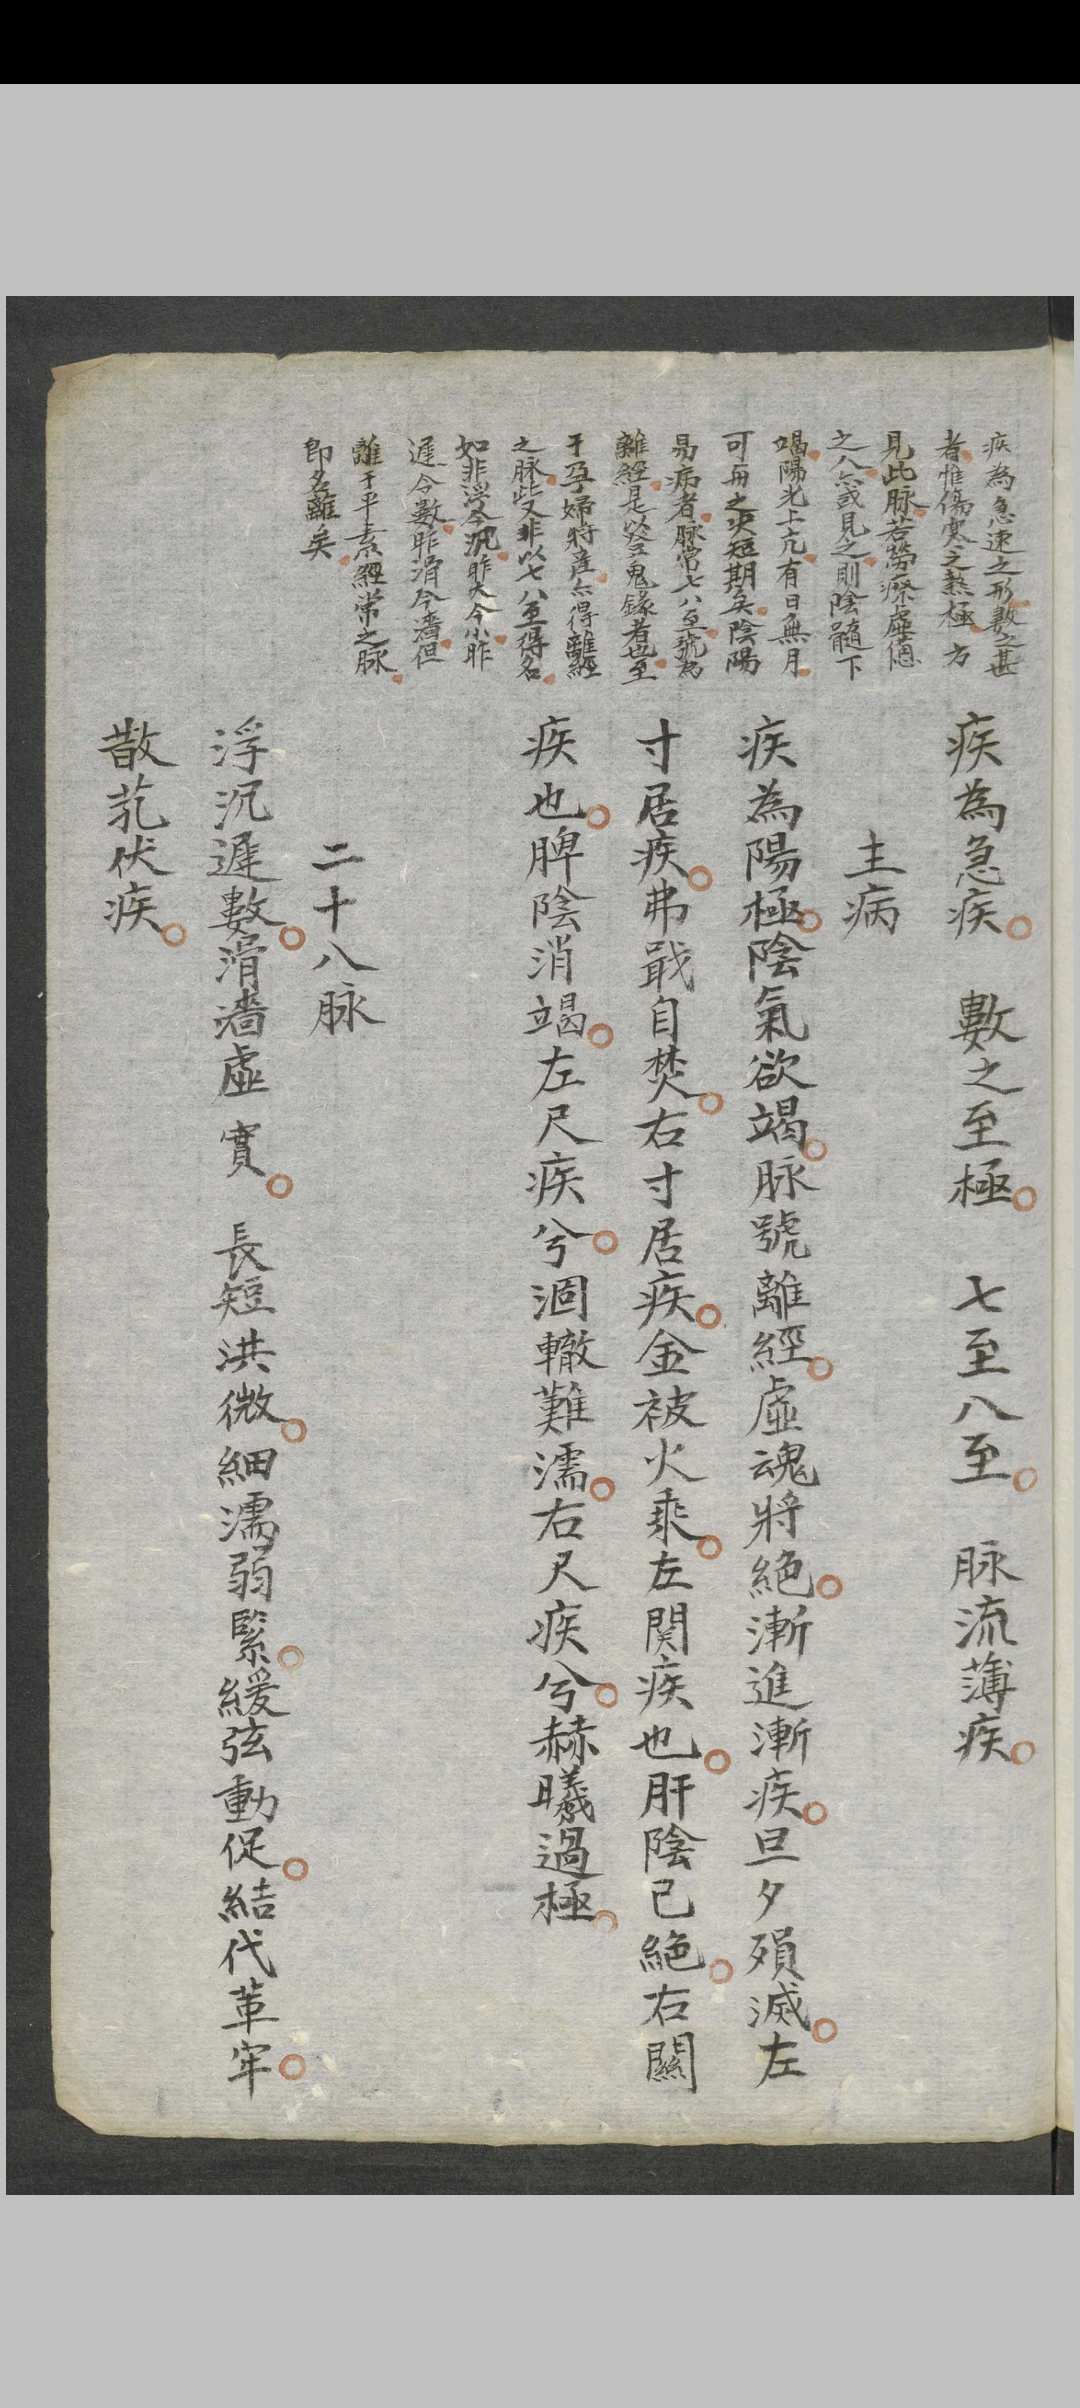 疾為急速之形數之甚
者惟傷寒之熱極方
見此脉若勞瘵虛憊
之人亦或見之則陰髓下
竭陽光上亢有日無月
可與之決短期矣陰陽
易病者脉常七八至號為
離經是登鬼錄者也至
于孕婦將產亦得離經
之脉此又非以七八至得名
如非浮今沉昨大今小昨
遲今數昨滑今濇但
離于平素經常之脉
即名離矣
疾為急疾 數之至極 七至八至 脉流薄疾
主病
疾為陽極陰氣欲竭脉號離經虛魂將絕漸進漸疾旦夕殞滅左
寸居疾弗戢自焚右寸居疾金被火乘左関疾也肝陰已絕右關
疾也脾陰消竭左尺疾兮涸轍難濡右尺疾兮赫曦過極
二十八脉
浮沉遲數滑濇虛實 長短洪微細濡弱緊緩弦動促結代革牢
散芤伏疾